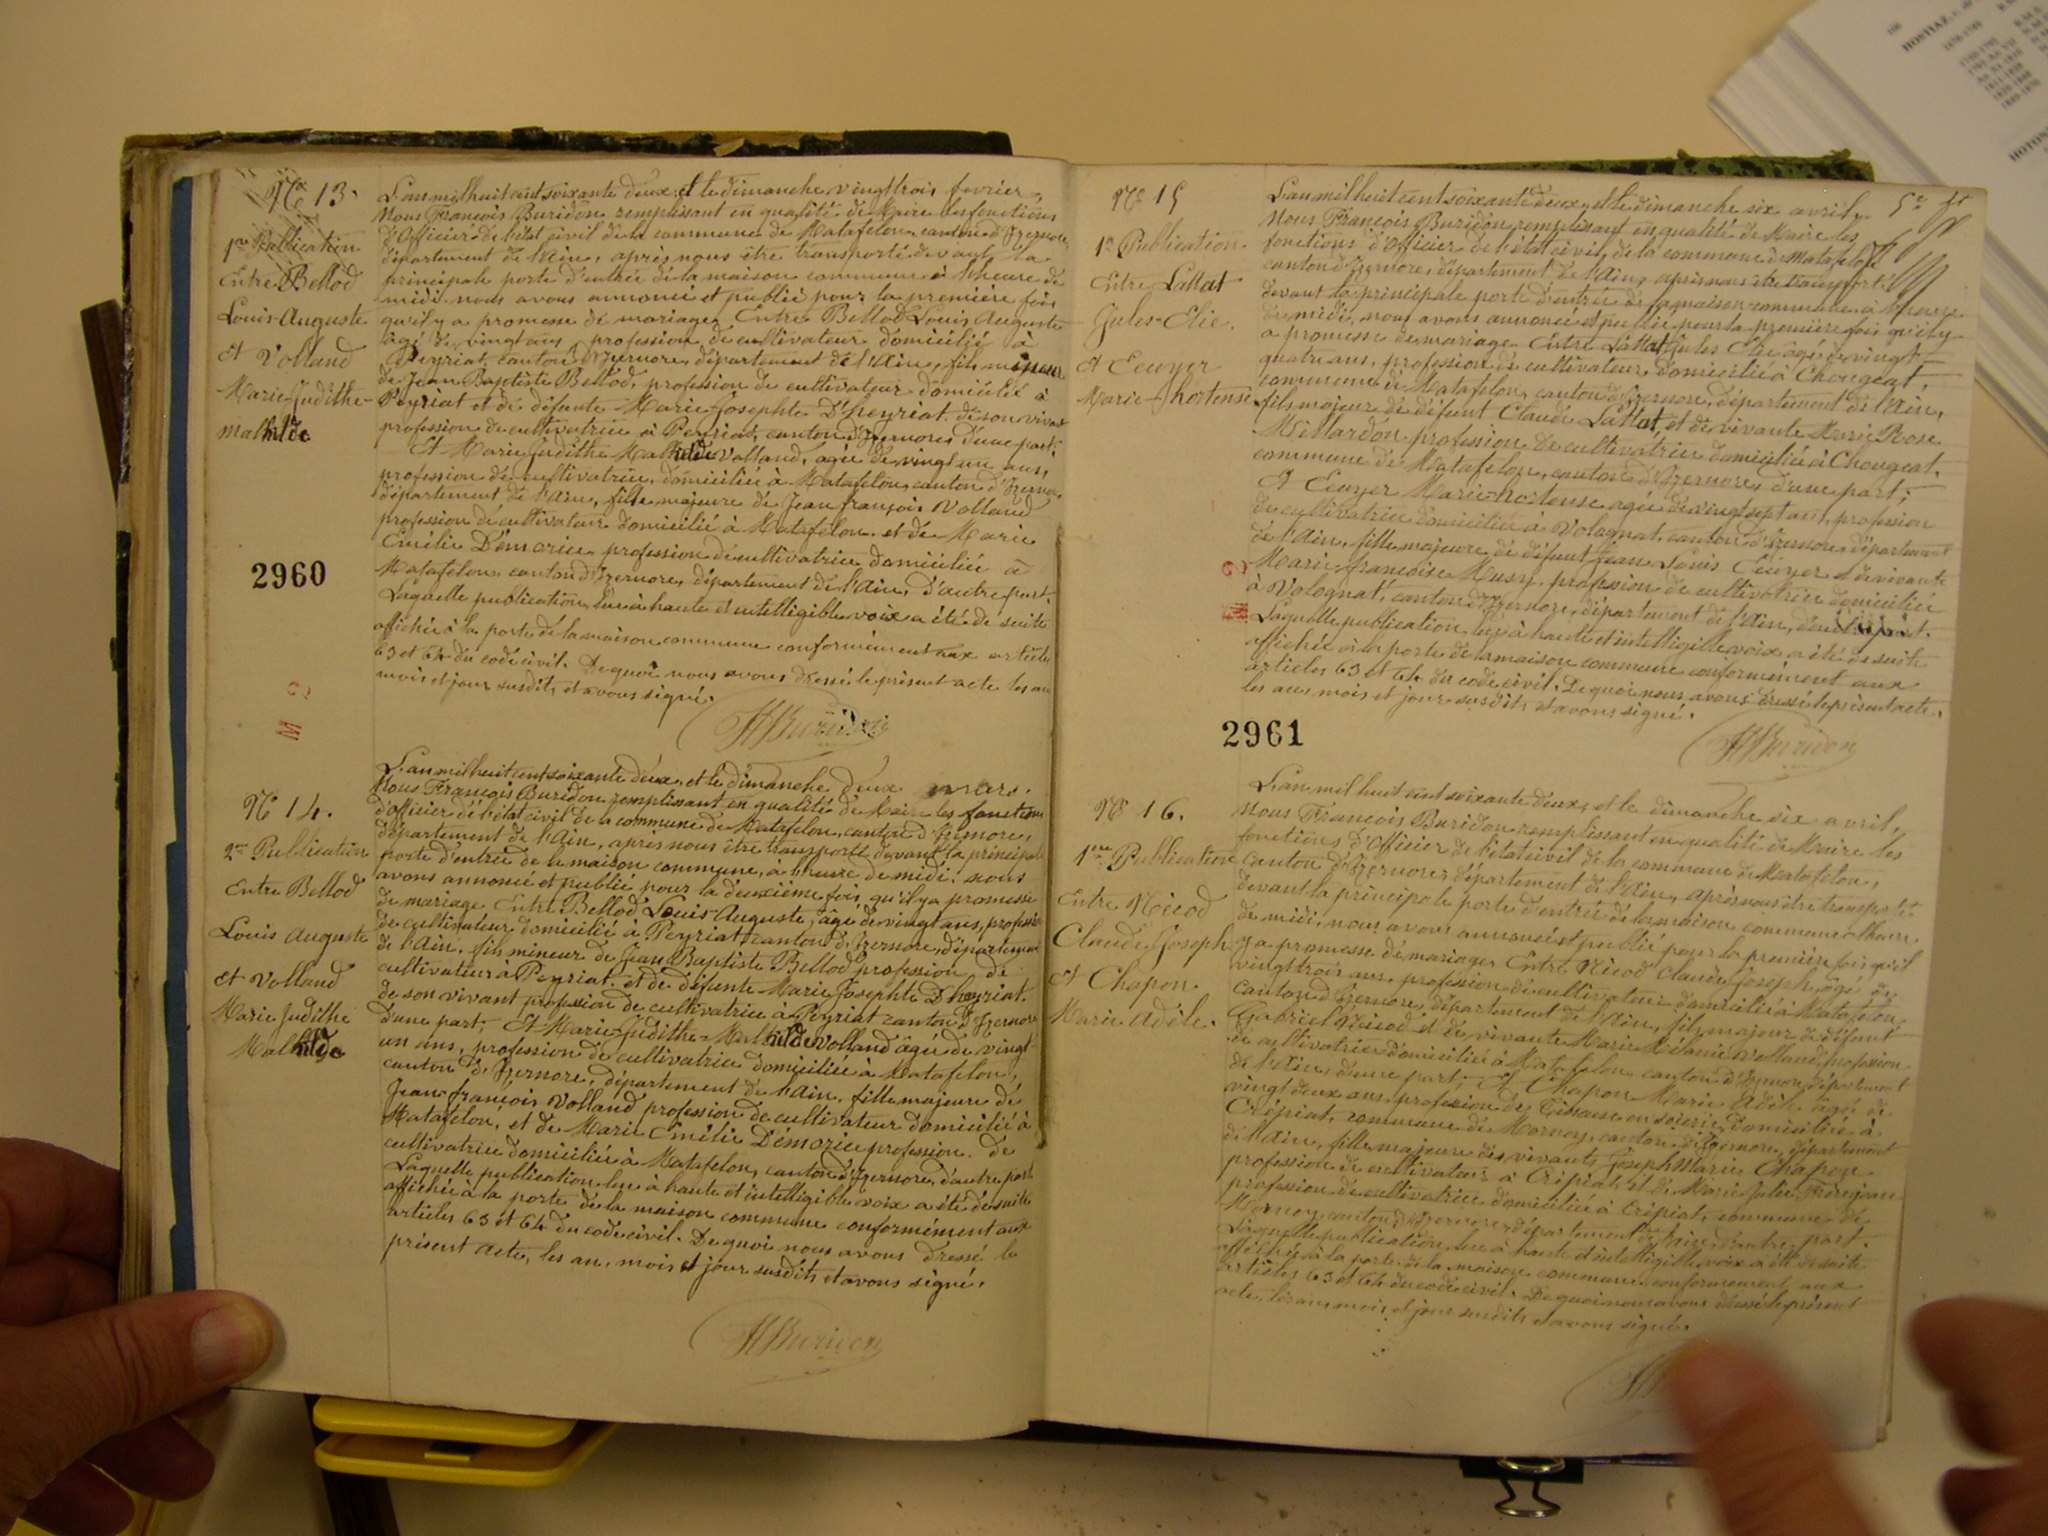 No 13.
1re Publication
Entre Bellod
Louis-Auguste
et Volland
Marie-Judithe-
Mathilde
L'an mil huit cent soixante deux et le dimanche vingt trois fevrier,
Nous François Buridon remplissant en qualité de Maire les fonctions
d'Officier de l'état civil de la commune de Matafelon, canton d'Izernore,
département de l'Ain, après nous être transporté devant la
principale porte d'entrée de la maison commune à l'heure de
midi nous avons annoncé et publié pour la première fois
qu'il y a promesse de mariage, Entre Bellod Louis Auguste
âgé de vingt ans, profession de cultivateur domicilié à
Peyriat, canton d'Izernore, département de l'Ain, fils mineur
de Jean Baptiste Bellod, profession de cultivateur domicilié à
Peyriat et de défunte Marie-Josephte D'heyriat de son vivant
profession de cultivatrice à Peyriat, canton d'Izernore, d'une part;
Et Marie Judithe Mathilde Volland, agée de vingt un ans,
profession de cultivatrice, domiciliée à Matafelon, canton d'Izernore,
département de l'Ain, fille majeure de Jean françois Volland
profession de cultivateur domicilié à Matafelon et de Marie
Emélie Démorice, profession de cultivatrice domiciliée à
Matafelon, canton d'Izernore, département de l'Ain, d'autre part.
Laquelle publication lue à haute et intelligible voix a été de suite
affichée à la porte de la maison commune conformément aux articles
63 et 64 du code civil. De quoi nous avons dressé le présent acte les an
mois et jour susdits et avons signé.
Buridon
2960
No 14.
2me Publication
Entre Bellod
Louis Auguste
et Volland
Marie Judithe
Mathilde
L'an mil huit cent soixante deux et le dimanche deux mars.
Nous François Buridon remplissant en qualité de Maire les fonctions
d'officier de l'état civil de la commune de Matafelon, canton d'Izernore,
département de l'Ain, après nous être transporté devant la principale
porte d'entrée de la maison commune, à l'heure de midi, nous
avons annoncé et publié pour la deuxième fois, qu'il y a promesse
de mariage Entre Bellod Louis-Auguste, âgé de vingt ans, profession
de cultivateur domicilié à Peyriat canton d'Izernore, département
de l'Ain, fils mineur de Jean Baptiste Bellod profession de
cultivateur à Peyriat et de défunte Marie Josephte D'heyriat
de son vivant profession de cultivatrice à Peyriat canton d'Izernore
d'une part; Et Marie-Judithe-Mathilde Volland âgée de vingt
un ans, profession de cultivatrice domiciliée à Matafelon,
canton d'Izernore, département de l'Ain, fille majeure de
Jean-françois Volland profession de cultivateur domicilié à
Matafelon, et de Marie Emélie Démorice profession de
cultivatrice domiciliée à Matafelon, canton d'Izernore, d'autre part.
Laquelle publication lue à haute et intelligible voix a été de suite
affichée à la porte de la maison commune conformément aux
articles 63 et 64 du code civil. De quoi nous avons dressé le
présent acte, les an, mois et jour susdits et avons signé.
Buridon
5e
No 15
1re Publication
Entre Lattat
Jules-Elie.
et Ecuyer
Marie-hortense
L'an mil huit cent soixante deux, et le dimanche six avril,
Nous François Buridon remplissant en qualité de Maire les
fonctions d'Officier de l'état civil, de la commune de Matafelon
canton d'Izernore, département de l'Ain, après nous être transporté
devant la principale porte d'entrée de la maison commune à l'heure
de midi, nous avons annoncé et publié pour la première fois qu'il y
a promesse de mariage Entre Lattat Jules Elie âgé de vingt
quatre ans, profession de cultivateur domicilié à Chougeat,
commune de Matafelon, canton d'Izernore, département de l'Ain,
fils majeur de défunt Claude Lattat, et de vivante Marie Rose
Millardon profession de cultivatrice domiciliée à Chougeat,
commune de Matafelon, canton d'Izernore, d'une part;
Et Ecuyer Marie-hortense agée de vingt sept ans, profession
de cultivatrice domiciliée à Volognat, canton d'Izernore, département
de l'Ain, fille majeure de défunt Jean Louis Ecuyer et de vivante
Marie-françoise Musy, profession de cultivatrice domiciliée
à Volognat, canton d'Izernore, département de l'Ain, d'autre part.
Laquelle publication lue à haute et intelligible voix a été de suite
affichée à la porte de la maison commune conformément aux
articles 63 et 64 du code civil. De quoi nous avons dressé le présent acte.
les an, mois et jour susdits et avons signé.
Buridon
2961
No 16.
1re Publication
Entre Nicod
Claude Joseph
Et Chapon
Marie Adèle.
L'an mil huit cent soixante deux, et le dimanche six avril,
Nous François Buridon remplissant en qualité de Maire les
fonctions d'Officier de l'état civil de la commune de Matafelon,
canton d'Izernore, département de l'Ain, après nous être transporté
devant la principale porte d'entrée de la maison commune à l'heure
de midi, nous avons annoncé et publié pour la première fois qu'il
y a promesse de mariage, Entre Nicod Claude Joseph, âgé de
vingt trois ans, profession de cultivateur domicilié à Matafelon
canton d'Izernore, département de l'Ain, fils majeur de défunt
Gabriel Nicod et de vivante Marie Mélanie Volland, profession
de cultivatrice domiciliée à Matafelon, canton d'Izernore, département
de l'Ain, d'une part; Et Chapon Marie Adèle âgée de
vingt deux ans, profession de Tisseuse en soierie, domiciliée à
Crépiat, commune de Mornay, canton d'Izernore, département
de l'Ain, fille majeure des vivants Joseph Marie Chapon
profession de cultivateur à Crépiat et de Marie Julie
profession de cultivatrice domiciliée à Crépiat, commune de
Mornay, canton d'Izernore, département de l'Ain, d'autre part.
Laquelle publication lue à haute et intelligible voix a été de suite
affichée à la porte de la maison commune conformément aux
articles 63 et 64 du code civil. De quoi nous avons dressé le présent
acte, les an, mois et jour susdits et avons signé.